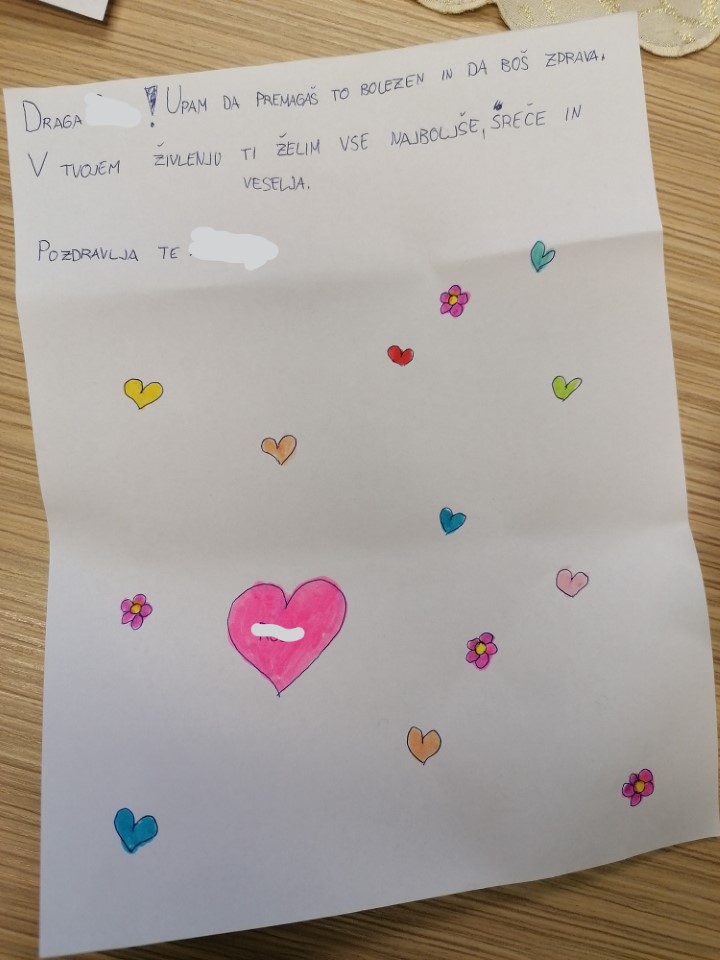 DRAGA ! UPAM DA PREMAGAŠ TO BOLEZEN IN DA BOŠ ZDRAVA.
V TVOJEM ŽIVLENJU TI ŽELIM VSE NAJBOLJŠE, SREČE IN
VESELJA.
POZDRAVLJA TE